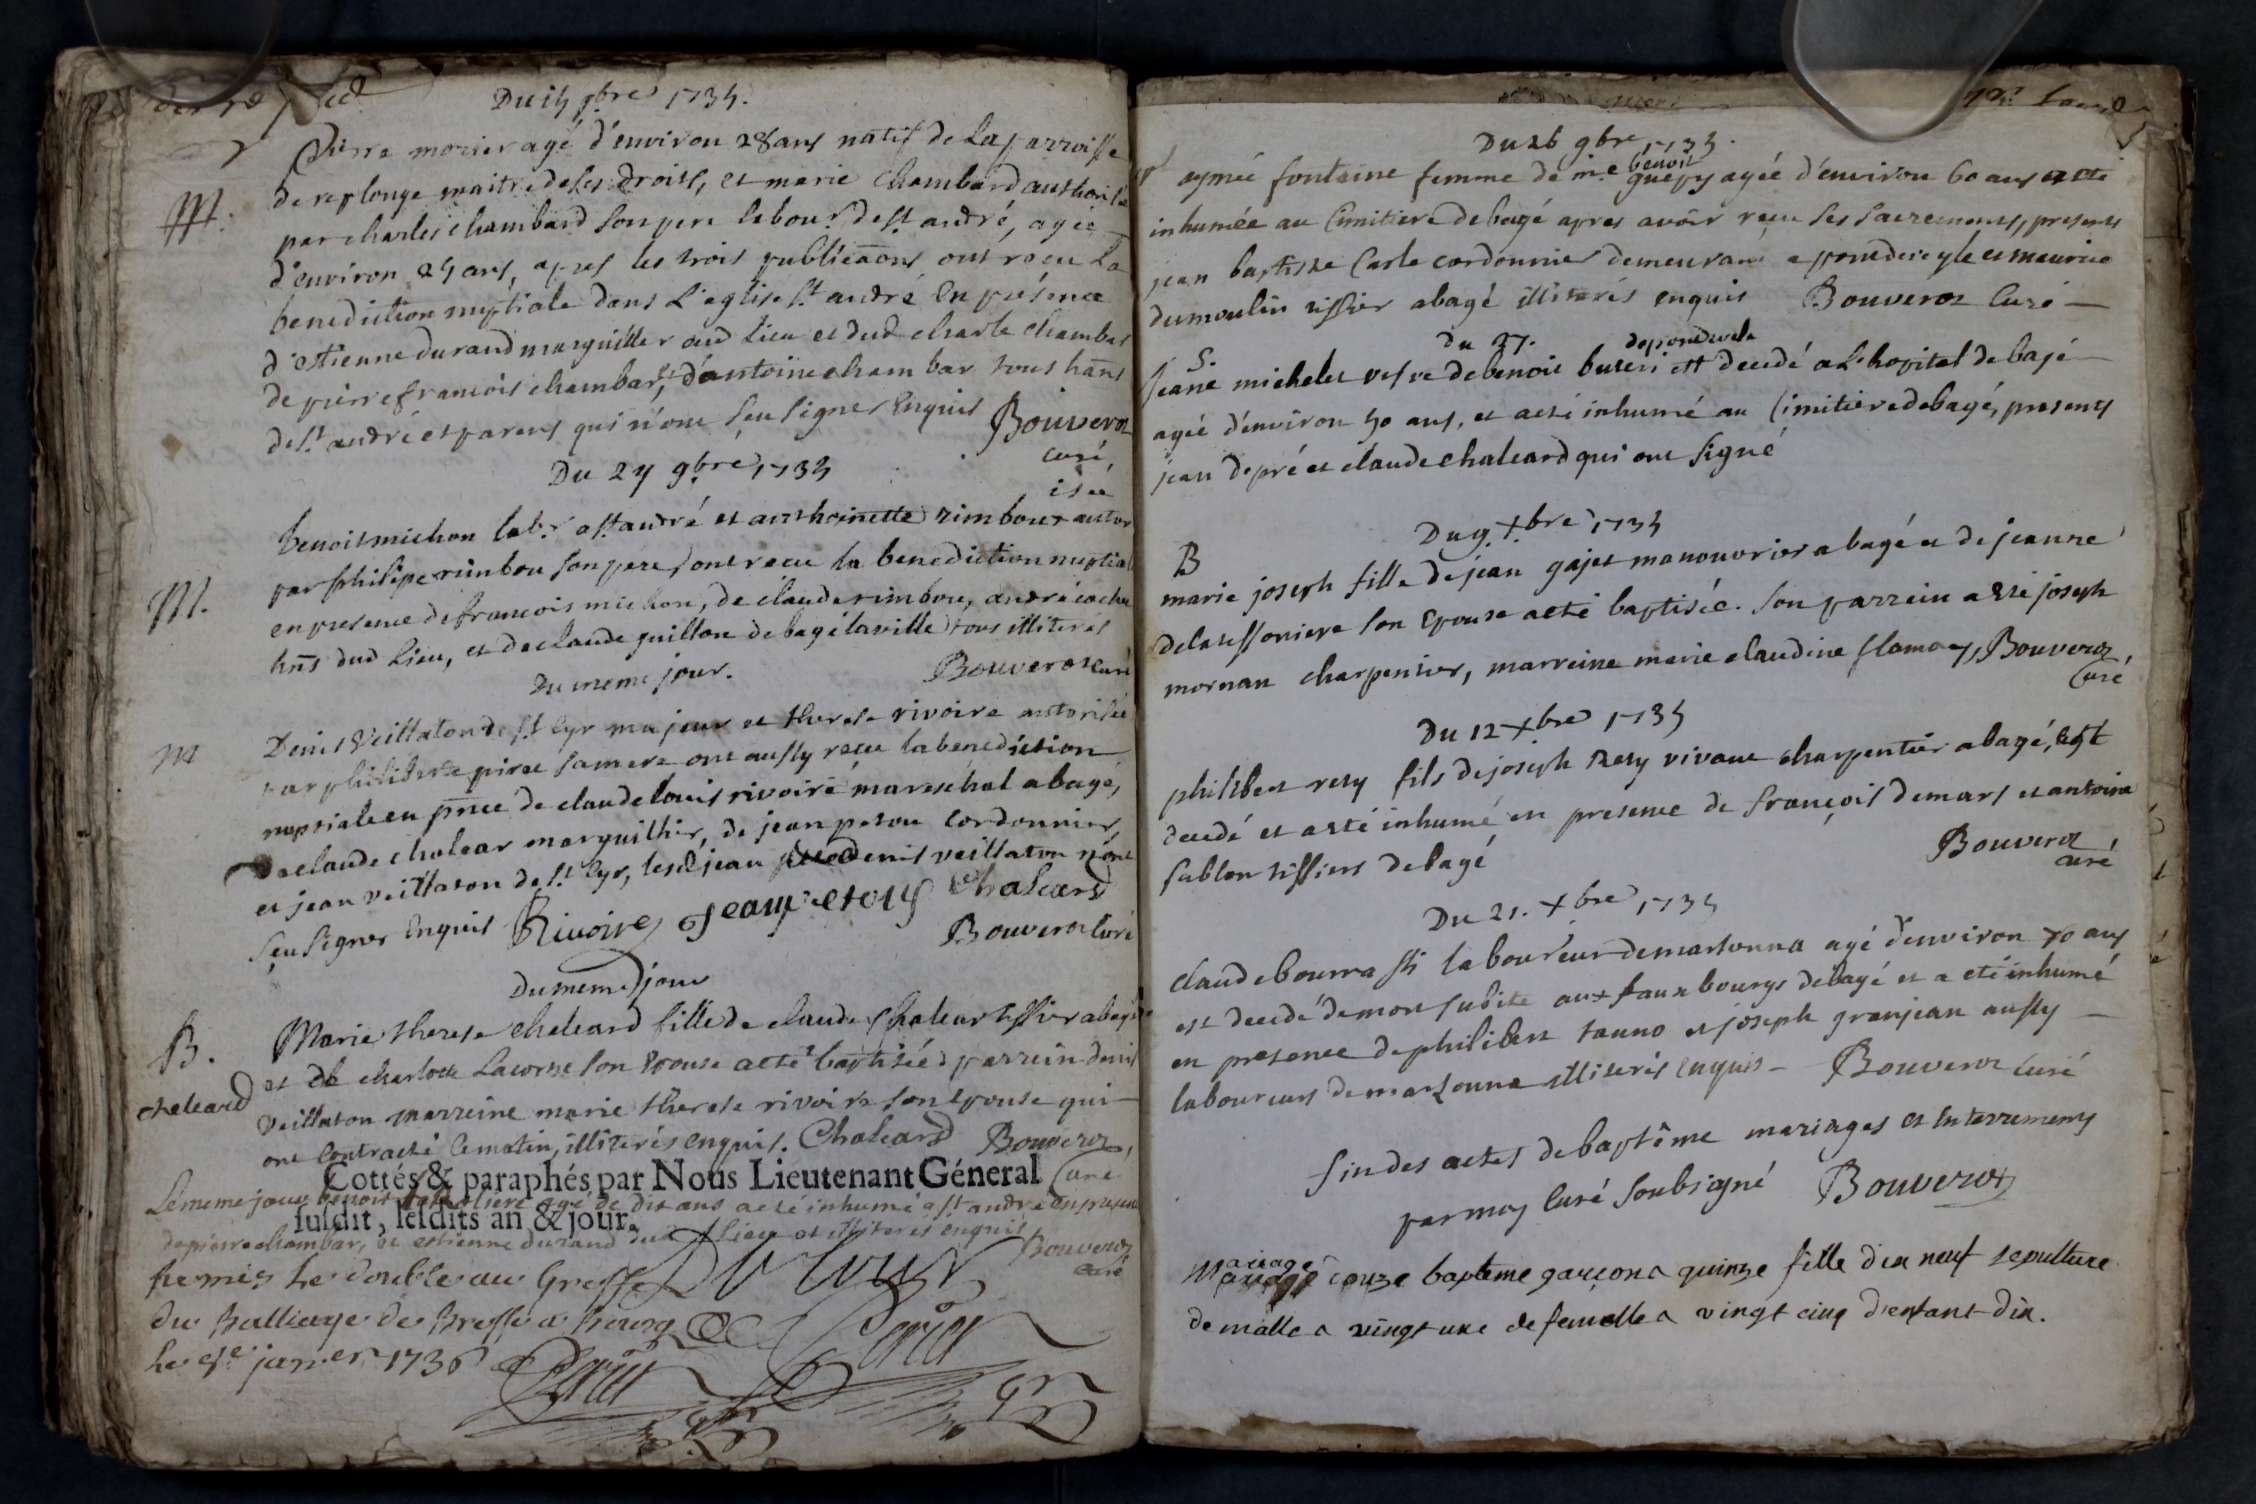 Du 15 9bre 1735.
Pierre morier agé d'environ 28 ans natif de la parroisse
M.
de replonge maitre de ses droits, et marie Chambard authorisée
par charles chambard son pere labour. de st. andré, agée
d'environ 25 ans, apres les trois publicaons ont reçu la
benediction nuptiale dans L'eglise st andré En présence
d'estienne durand marguiller aud lieu et dud charle chambar
de pierre françois chambar, et d'antoine chambar tous hans
de st andré et parens qui n'ont sçu signer Enquis Bouverot
curé,
Du 24 9bre 1735
isée
benoit michon labr. a st andré et anthoinette rimbour autor
M.
par philipe rimbou son pere, ont recu la benediction nuptial
en presence de francois michon, de claude rimbou, andré
hns dud Lieu, et de claude guillon de bagé la ville tous illiterés
Bouverot curé
Du meme jour.
M
Denis Veillaton de st Cyr majeur et therese rivoire autorisée
par philiberte pirot sa mere ont aussy reçu la benediction
nuptiale en pnce de claude louis rivoire mareschal a bagé,
de claude chalear marguillier, de jean peton Cordonnier,
et jean veillaton de st Cyr, lesd jean denis veillaton n'ont
sçu signer Enquis Rivoire jean petons Chaleard
Bouverot Curé
Du meme jour
B.
Marie therese chaleard fille de claude Chalear tissier a bagé
et de charlotte Lacorne son Epouse a eté baptisée, parrein denis
chaleard
Veillaton marreine marie therese rivoire son epouse qui
ont Contracté Ce matin, illiterés enquis. Chaleard Bouverot,
Curé
Cottés & paraphés par Nous Lieutenant Géneral
Le meme jour benoit agé de dix ans a eté inhumé a st andré en presence
susdit, lesdits an & jour.
de pierre chambar, et estienne durand dud Lieu et illiterés enquis
Bouverot
curé
Remis Le double au Greffe
du Balliage de Bresse a bourg
Le janvier 1736
Du 26 9bre 1735.
benoit
aymée fontaine femme de me guepy agée d'environ 60 ans a eté
inhumée au Cimitiere de bagé apres avoir reçu ses sacremens, presents
jean baptiste Carle cordonnier demeurant a pondeveyle et maurice
dumoulin tissier a bagé illiterés enquis Bouverot Curé
Du 27.
S.
depondevele
jeane michelet vefve de benoit buteri est decedé a L'hopital de bajé
agée d'environ 50 ans, et a eté inhumé au Cimitiere de bagé, presents
jean depré et claude chaleard qui ont signé
Du 9. Xbre 1735
B
marie joseph fille de jean gajet manouvrier a bagé et de jeanne
de la tessoniere son Epouse a eté baptisée. son parrein a eté joseph
mornan charpentier, marreine marie claudine flamory, Bouverot,
Curé
Du 12 Xbre 1735
philibert rety fils de joseph Rety vivant charpentier a bagé, est
decedé et a eté inhumé en presence de françois demars et antoine
sablon tissiers de bagé
Bouverot
curé
Du 21. Xbre 1735
claude bourrassti laboureur de marsonna agé d'environ 70 ans
est decedé de mort subite aux fauxbourgs de bagé et a eté inhumé
en presence de philibert tauno et joseph granjean aussy
laboureurs de marsonna illiterés enquis - Bouverot Curé
fin des actes de baptême mariages et Enterremens
par moy Curé soubsigné Bouverot
Mariage onze baptême garçon a quinze fille dix neuf sepulture
de malle a vingt une de femelle a vingt cinq d'enfant dix.